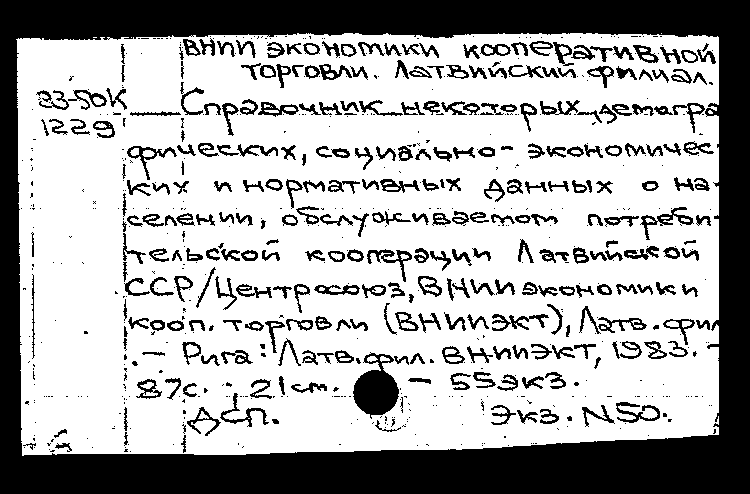 ВНИИ экономики кооперативной
торговли. Латвийский филиал.
83-50К
1229
Справочник некоторых демогра
фических, социально- экономичес-
ких и нормативных данных о на-
селении, обслуживаемом потреби-
тельской кооперации Латвийской
ССР/Центросоюз, ВНИИ экономики
кооп. торговли (ВНИИЭКТ), Латв. фил
.— Рига: Латв. фил. ВНИИЭКТ, 1983. -
87с. ; 21см. — 55экз.
ДСП. Экз. N50.